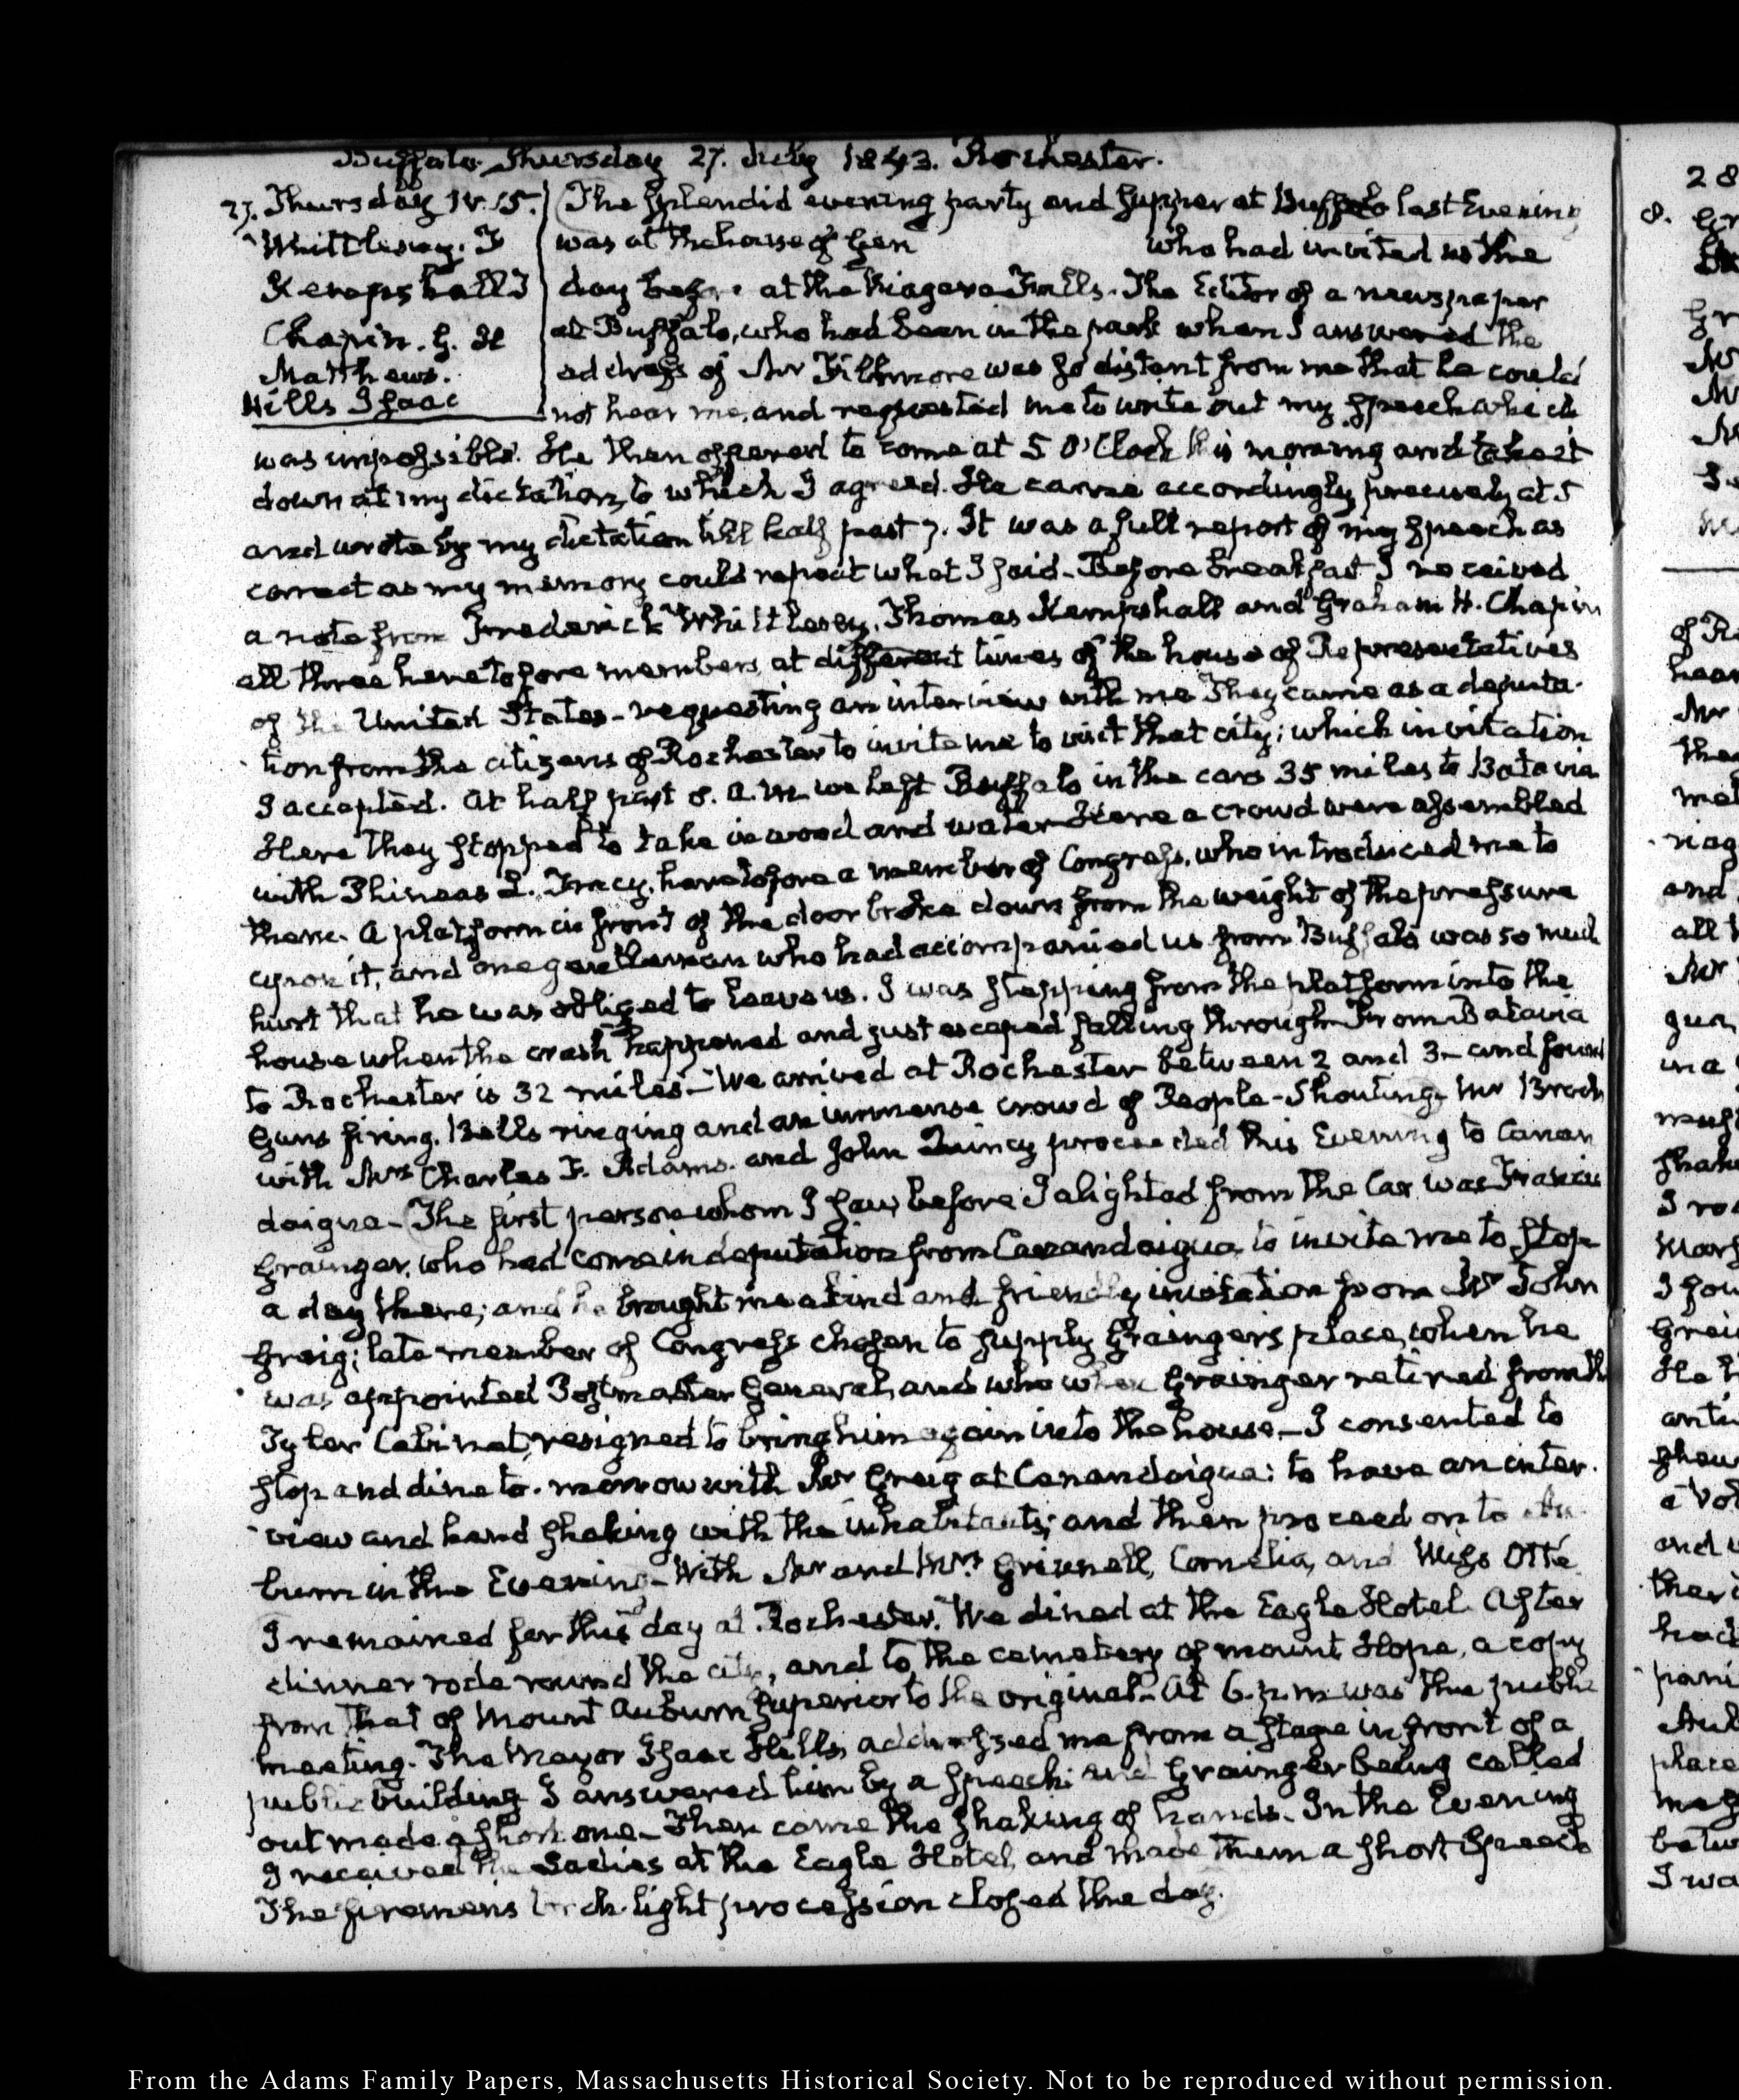 Buffalo. Thursday 27. July 1843. Rochester.
27. Thursday IV. 15.
Whittlesey. F
Kempshall T
Chapin. G. H
Matthews.
Hills Isaac
The splendid evening party and supper at Buffalo last Evening
was at the house of Gen who had invited us the
day before at the Niagara Falls. The Editor of a newspaper
at Buffalo, who had been in the park when I answered the
address of Mr Fillmore was so distant from me that he could
not hear me, and requested me to write out my speech which
was impossible. He then offered to come at 5 O'Clock this morning and take it
down at my dictation, to which I agreed. He came accordingly precisely at 5
and wrote by my dictation till half past 7. It was a full report of my speech as
correct as my memory could repeat what I said_ Before breakfast I received
a note from Frederick Whittlesey, Thomas Kempshall and Graham H. Chapin
all three heretofore members, at different times of the house of Representatives
of the United States_ requesting an interview with me They came as a deputa-
tion from the citizens of Rochester to invite me to visit that city; which invitation
I accepted. At half past 8. A.M. we left Buffalo in the cars 35 miles to Batavia
Here they stopped to take in wood and water Here a crowd were assembled
with Phineas L. Tracy, heretofore a member of Congress, who introduced me to
them. A platform in front of the door broke down from the weight of the pressure
upon it, and one gentleman who had accompanied us from Buffalo was so much
hurt that he was obliged to leave us. I was stepping from the platform into the
house when the crash happened and just escaped falling through_ From Batavia
to Rochester is 32 miles_ We arrived at Rochester between 2 and 3_ and found
Guns firing, Bells ringing and an immense crowd of People_ Shouting_ Mr
with Mrs Charles F. Adams. and John Quincy proceeded this Evening to Canan
daigua_ The first person whom I saw, before I alighted from the Car was Francis
Grainger, who had come in deputation from Canandaigua, to invite me to stop
a day there; and he brought me a kind and friendly invitation from Mr John
Greig; late member of Congress chosen to supply Graingers place, when he
was appointed Postmaster General, and who when Grainger retired from the
Tyler Cabinet, resigned to bring him again into the house_ I consented to
stop and dine to-morrow with Mr Greig at Canandaigua: to have an inter-
view and hand shaking with the inhabitants; and then proceed on to Au-
burn in the Evening_ With Mr and Mrs Grinnell, Cornelia, and Miss Otis
I remained for this day at Rochester. We dined at the Eagle Hotel. After
dinner rode round the city, and to the cemetery of mount Hope, a copy
from that of Mount Auburn, superior to the original_ At 6. p.m was the public
meeting. The Mayor Isaac Hills, addressed me from a stage in front of a
public building I answered him by a speech: and Grainger being called
out made a short one_ Then came the shaking of hands_ In the Evening
I received the Ladies at the Eagle Hotel, and made them a short speech
The firemens torch-light procession closed the day.
28
8.
From the Adams Family Papers, Massachusetts Historical Society. Not to be reproduced without permission.